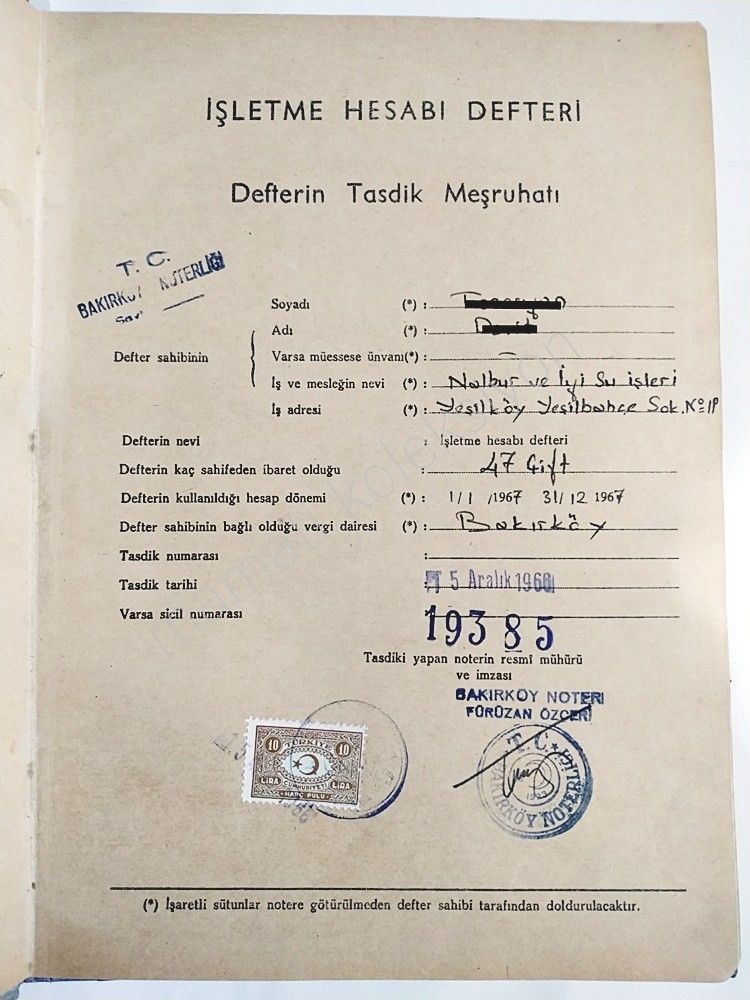 İŞLETME HESABI DEFTERİ
Defterin Tasdik Meşruhatı
T. C.
BAKIRKÖY NOTERLİĞİ
Soyadı (*) :
Adı (*) :
Defter sahibinin
Varsa müessese ünvanı(*) : —
İş ve mesleğin nevi (*) : Nalbur ve İyi Su işleri
İş adresi (*) : Yeşilköy Yeşilbahçe Sok. No
Defterin nevi : İşletme hesabı defteri
Defterin kaç sahifeden ibaret olduğu : 47 Çift
Defterin kullanıldığı hesap dönemi (*) : 1/1/1967 31/12 1967
Defter sahibinin bağlı olduğu vergi dairesi (*) : Bakırköy
Tasdik numarası :
Tasdik tarihi : 5 Aralık 1966
Varsa sicil numarası : 19385
Tasdiki yapan noterin resmî mühürü
ve imzası
BAKIRKÖY NOTERİ
FÜRÜZAN ÖZÇERİ
10 TÜRKİYE 10
LİRA CUMHURİYETİ LİRA
HARÇ PULU
T. C.
BAKIRKÖY NOTERLİĞİ
(*) İşaretli sütunlar notere götürülmeden defter sahibi tarafından doldurulacaktır.